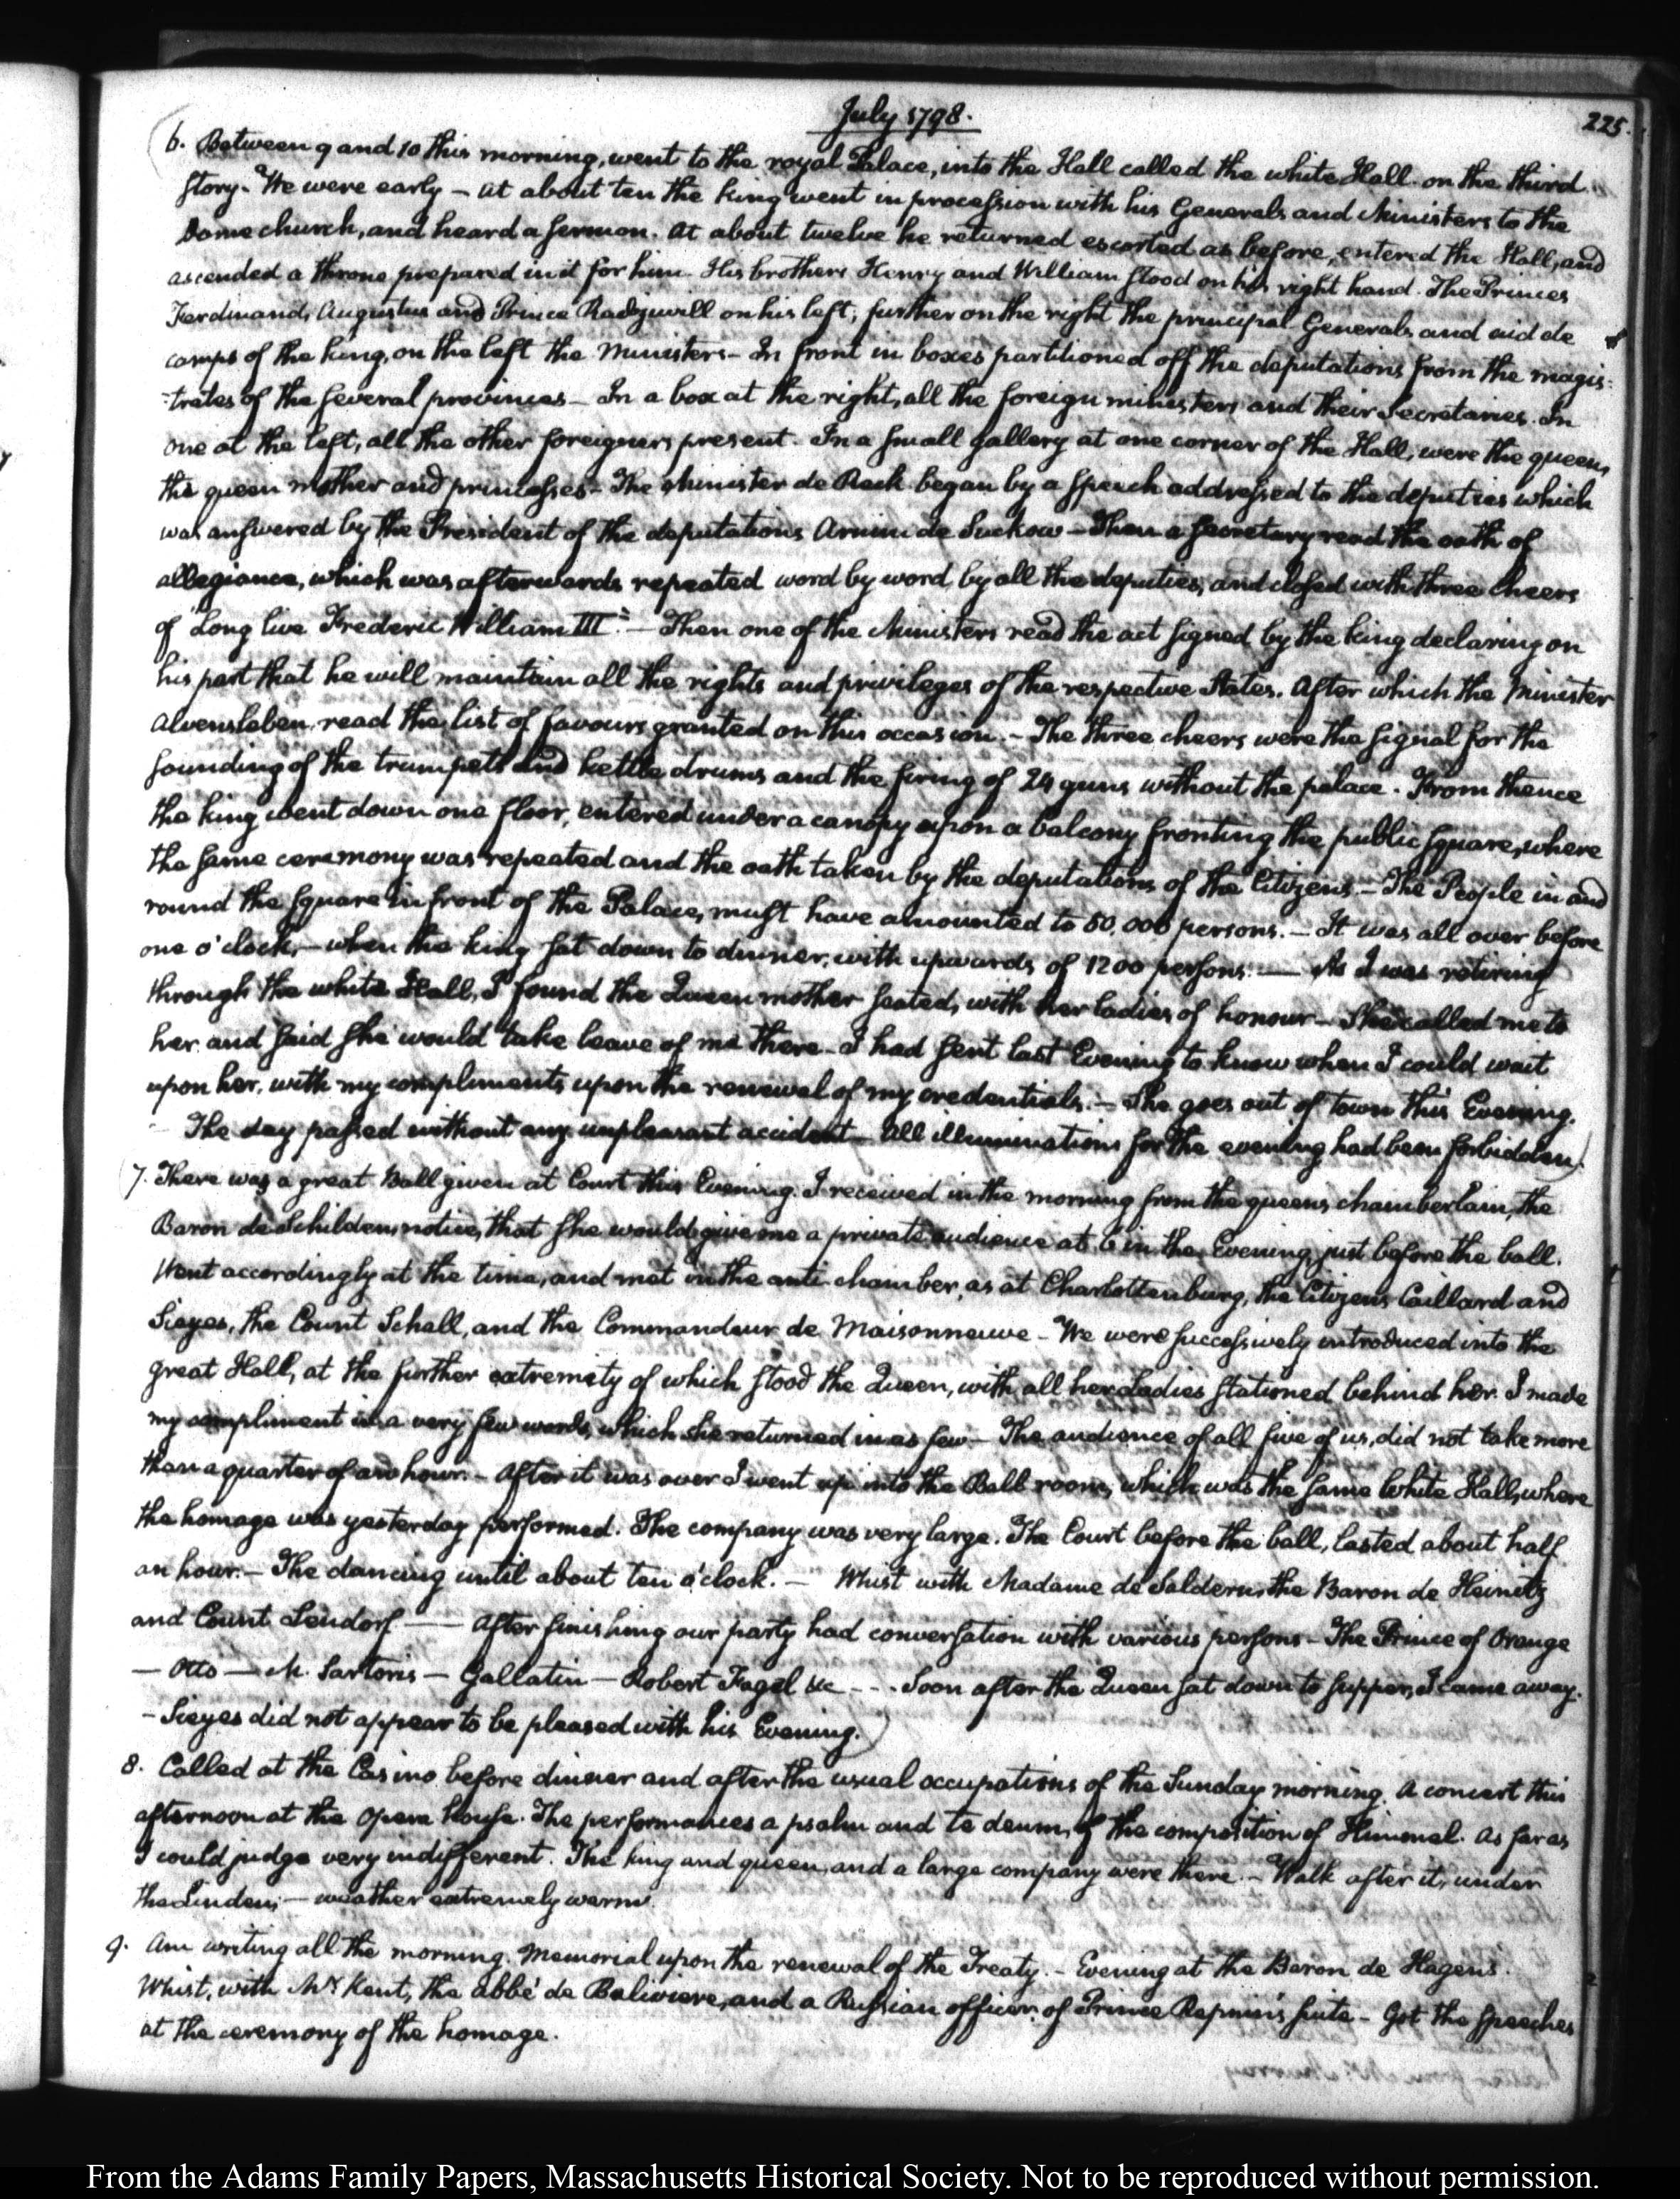 July 1798.
225.
6. Between 9 and 10 this morning, went to the royal Palace, into the Hall called the white Hall on the third
story. We were early – at about ten the king went in procession with his Generals and Ministers to the
Dome church, and heard a sermon. At about twelve he returned escorted as before, entered the Hall, and
ascended a throne prepared in it for him. His brothers Henry and William stood on his right hand. The Princes
Ferdinand, Augustus and Prince Radziwill on his left; further on the right the principal Generals and aid de
camps of the king, on the left the Ministers – In front in boxes partitioned off the deputations from the magis-
-trates of the several provinces – In a box at the right, all the foreign ministers and their Secretaries. In
one at the left, all the other foreigners present. In a small gallery at one corner of the Hall, were the queen,
the queen mother and princesses – The Minister de Reck began by a speech addressed to the deputies which
was answered by the President of the deputations Arnim de Suckow – Then a Secretary read the oath of
allegiance, which was afterwards repeated word by word, by all the deputies, and closed with three cheers
of "Long live Frederic William III" – Then one of the Ministers read the act signed by the king declaring on
his part that he will maintain all the rights and privileges of the respective States. After which the Minister
Alvensleben read the list of favours granted on this occasion. – The three cheers were the signal for the
sounding of the trumpets and kettle drums and the firing of 24 guns without the palace. From thence
the king went down one floor, entered under a canopy upon a balcony fronting the public square, where
the same ceremony was repeated and the oath taken by the deputations of the Citizens. – The People in and
round the square in front of the Palace, must have amounted to 50,000 persons. – It was all over before
one o'clock, – when the king sat down to dinner, with upwards of 1200 persons. — As I was retiring
through the white Hall, I found the Queen mother seated, with her ladies of honour – She called me to
her, and said she would take leave of me there – I had sent last Evening to know when I could wait
upon her, with my compliments upon the renewal of my credentials. – She goes out of town this Evening.
– The day passed without any unpleasant accident – All illuminations for the evening had been forbidden.
7. There was a great Ball given at Court this Evening. I received in the morning from the queens chamberlain, the
Baron de Schilden, notice, that she would give me a private audience at 6 in the Evening, just before the ball.
Went accordingly at the time, and met in the anti-chamber, as at Charlottenburg, the Citizens Caillard and
Sieyes, the Count Schall, and the Commandeur de Maisonneuve – We were successively introduced into the
great Hall, at the further extremity of which stood the Queen, with all her Ladies stationed behind her. I made
my compliment in a very few words, which she returned in as few – The audience of all five of us, did not take more
than a quarter of an hour. – After it was over I went up into the Ball room, which was the same White Hall, where
the homage was yesterday performed. The company was very large. The Court before the ball, lasted about half
an hour. – The dancing until about ten o'clock. – Whist with Madame de Saldern, the Baron de Heinitz
and Count Lendorf —— After finishing our party had conversation with various persons – The Prince of Orange
— Otto — M. Sartoris — Gallatin — Robert Fagel &c - - . Soon after the Queen sat down to supper, I came away.
– Sieyes did not appear to be pleased with his Evening.)
8. Called at the Casino before dinner and after the usual occupations of the Sunday morning. A concert this
afternoon at the Opera house. The performances a psalm and te deum, of the composition of Himmel. As far as
I could judge very indifferent. The king and queen, and a large company were there. – Walk after it, under
the Lindens – weather extremely warm.
9. Am writing all the morning. Memorial upon the renewal of the Treaty. – Evening at the Baron de Hagen's.
Whist, with Mr Kent, the abbé de Baliviere, and a Russian officer of Prince Repnin's suite – Got the speeches
at the ceremony of the homage.
From the Adams Family Papers, Massachusetts Historical Society. Not to be reproduced without permission.